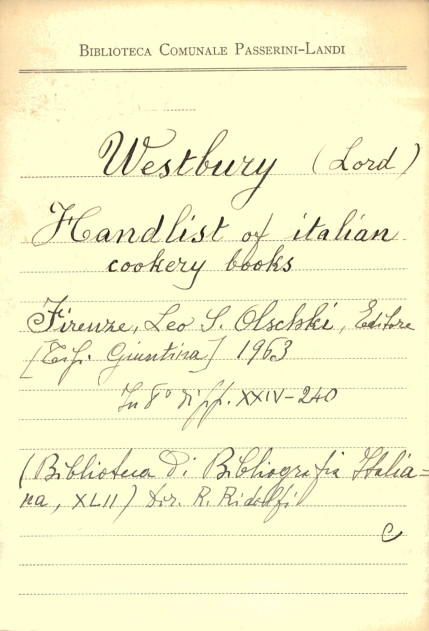 BIBLIOTECA COMUNALE PASSERINI-LANDI
Westbury (Lord)
Handlist of italian
cookery books
Firenze, Leo S. Olschki, Editore
[Tip. Giuntina] 1963
In 8° di pp. XXIV-240
(Biblioteca di Bibliografia Italia=
na, XLII) Dir. R. Ridolfi
C